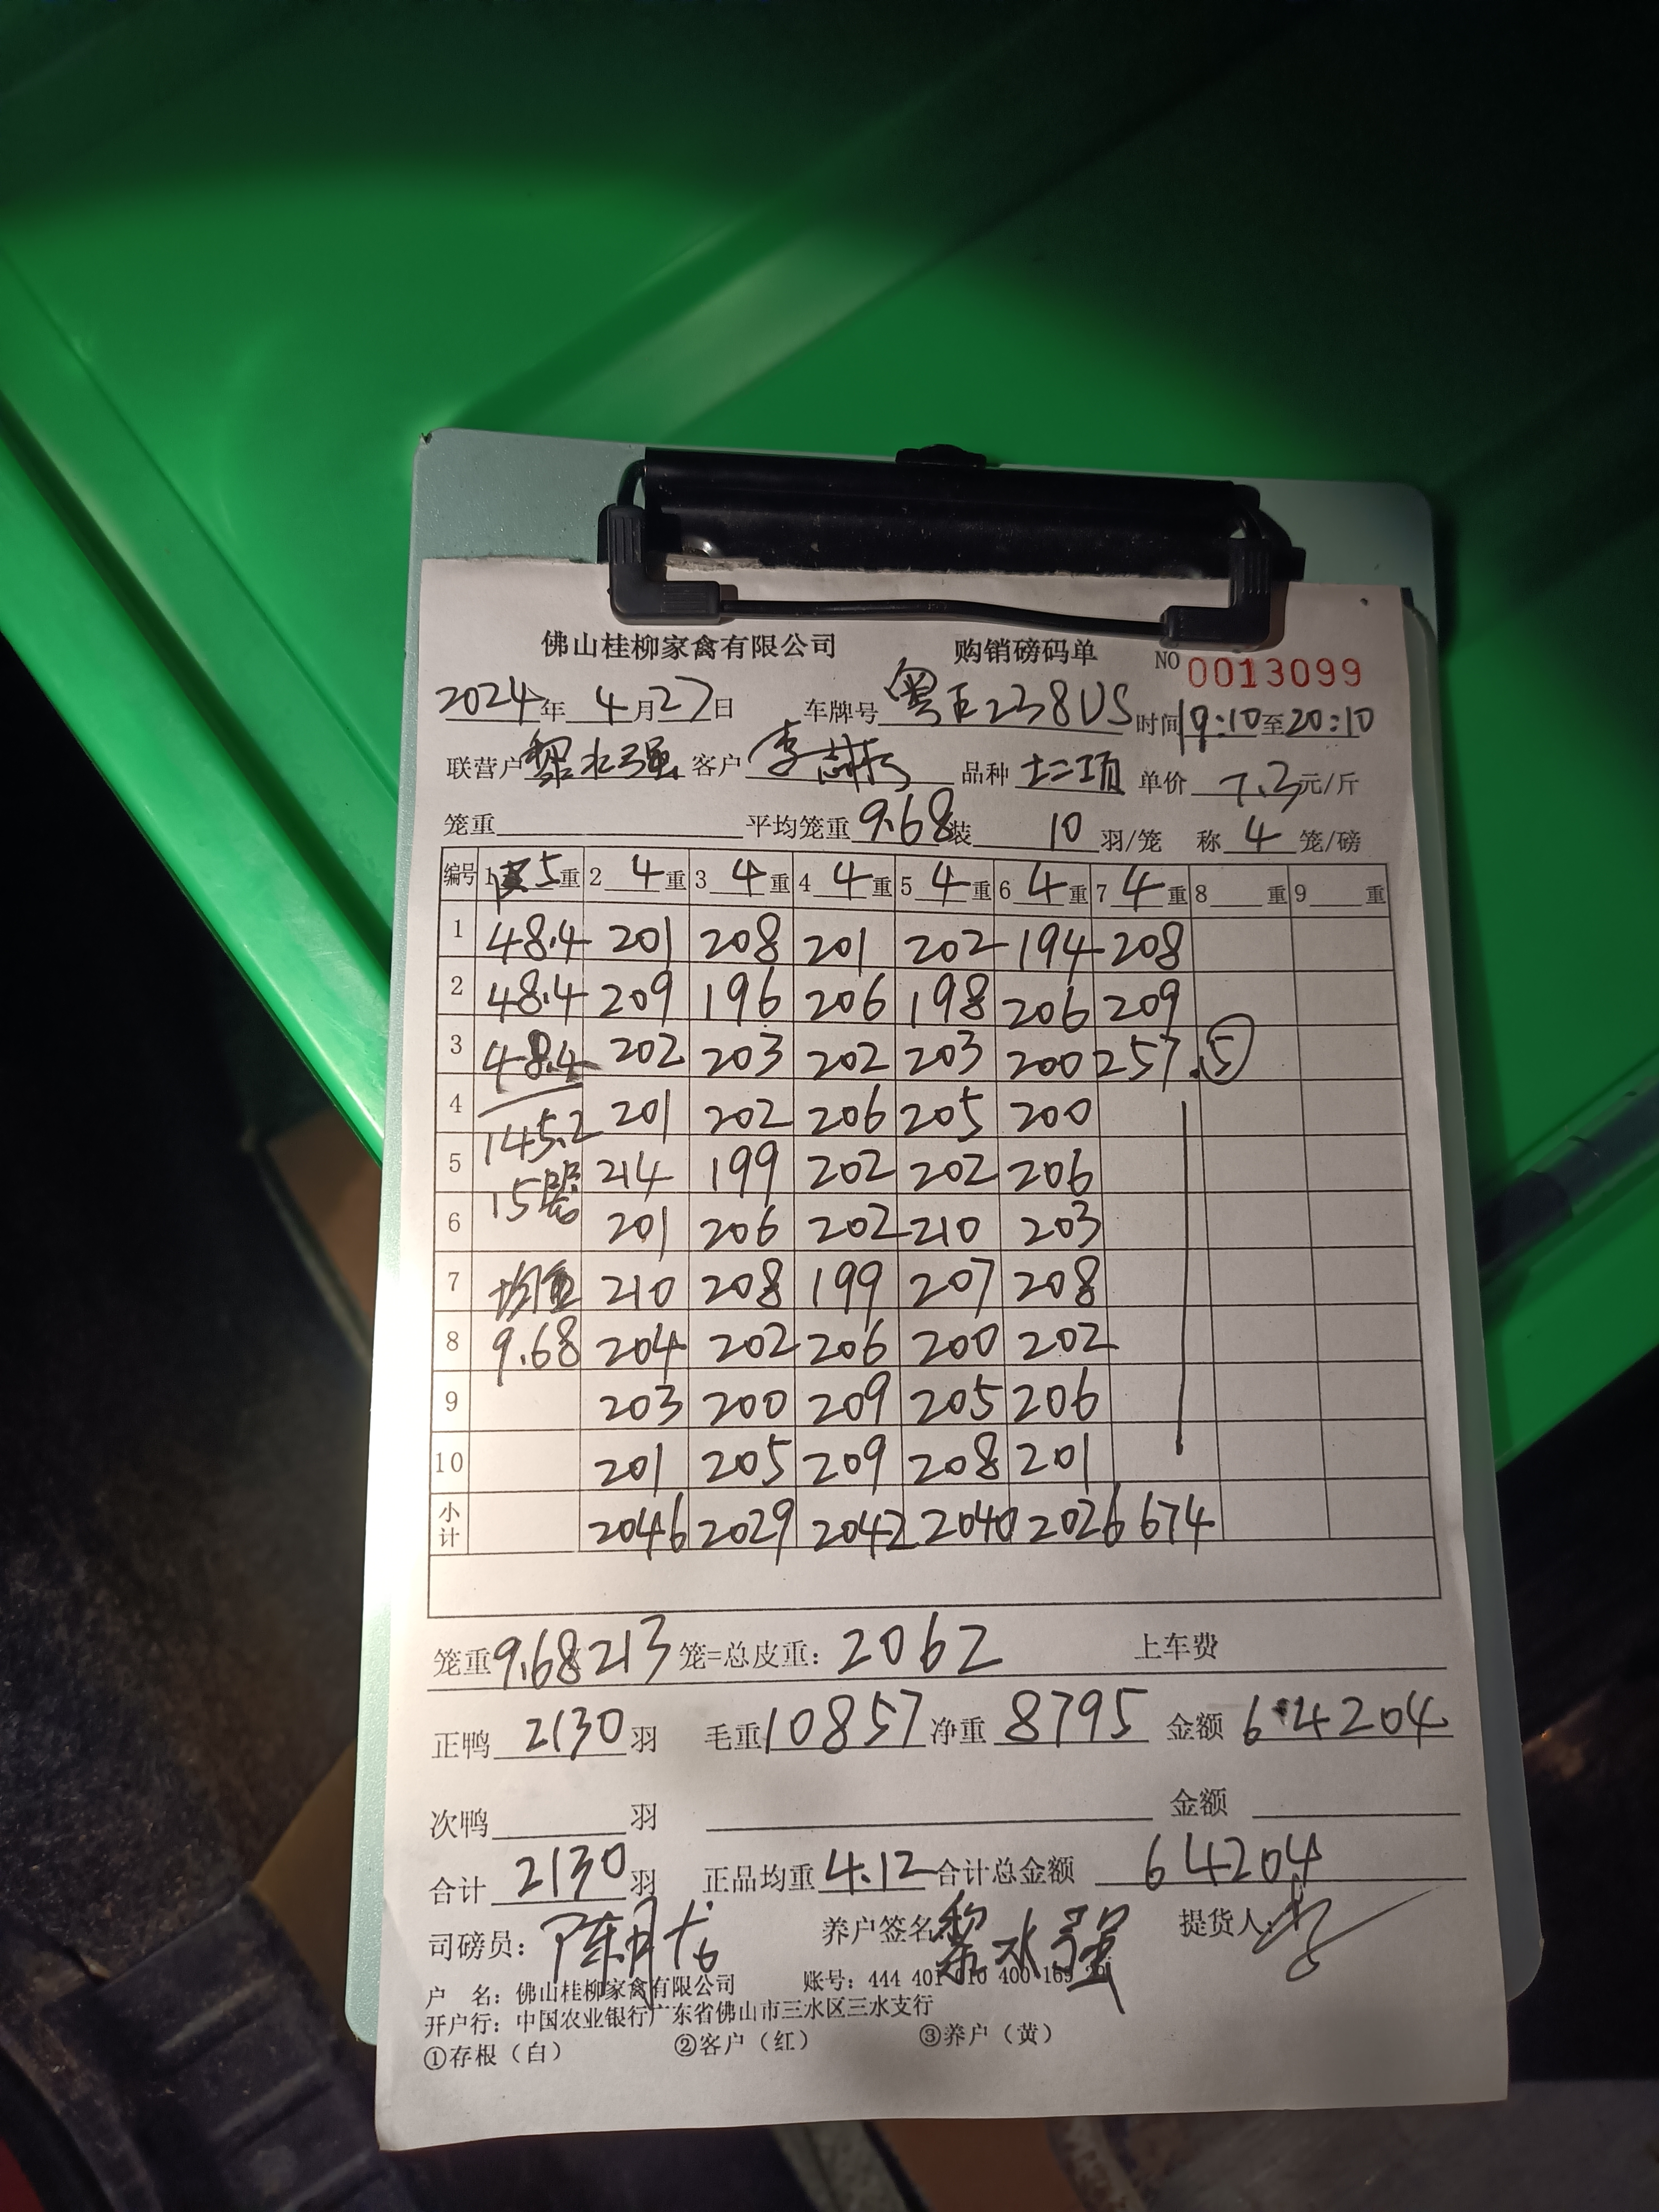 佛山桂柳家禽有限公司 购销磅码单 NO 0013099
2024年 4月27日 车牌号 粤E238US 时间19:10至20:10
联营户 黎水强 客户 李 品种 土二项 单价 7.3元/斤
笼重 平均笼重 9.68 装 10 羽/笼 称 4 笼/磅
编号 1 皮5重 2 4重 3 4重 4 4重 5 4重 6 4重 7 4重 8 重 9 重
1 48.4 201 208 201 202 194 208
2 48.4 209 196 206 198 206 209
3 48.4 202 203 202 203 200 257.⑤
4 145.2 201 202 206 205 200
5 15 214 199 202 202 206
6 201 206 202 210 203
7 均重 210 208 199 207 208
8 9.68 204 202 206 200 202
9 203 200 209 205 206
10 201 205 209 208 201
小计 2046 2029 2042 2040 2026 674
笼重9.68 213笼=总皮重: 2062 上车费
正鸭 2130 羽 毛重10857 净重 8795 金额 64204
次鸭 羽 金额
合计 2130 羽 正品均重 4.12 合计总金额 64204
司磅员: 陈 养户签名 黎水强 提货人: 李
户 名: 佛山桂柳家禽有限公司 账号: 444 401 010 400 169
开户行: 中国农业银行广东省佛山市三水区三水支行
①存根（白） ②客户（红） ③养户（黄）